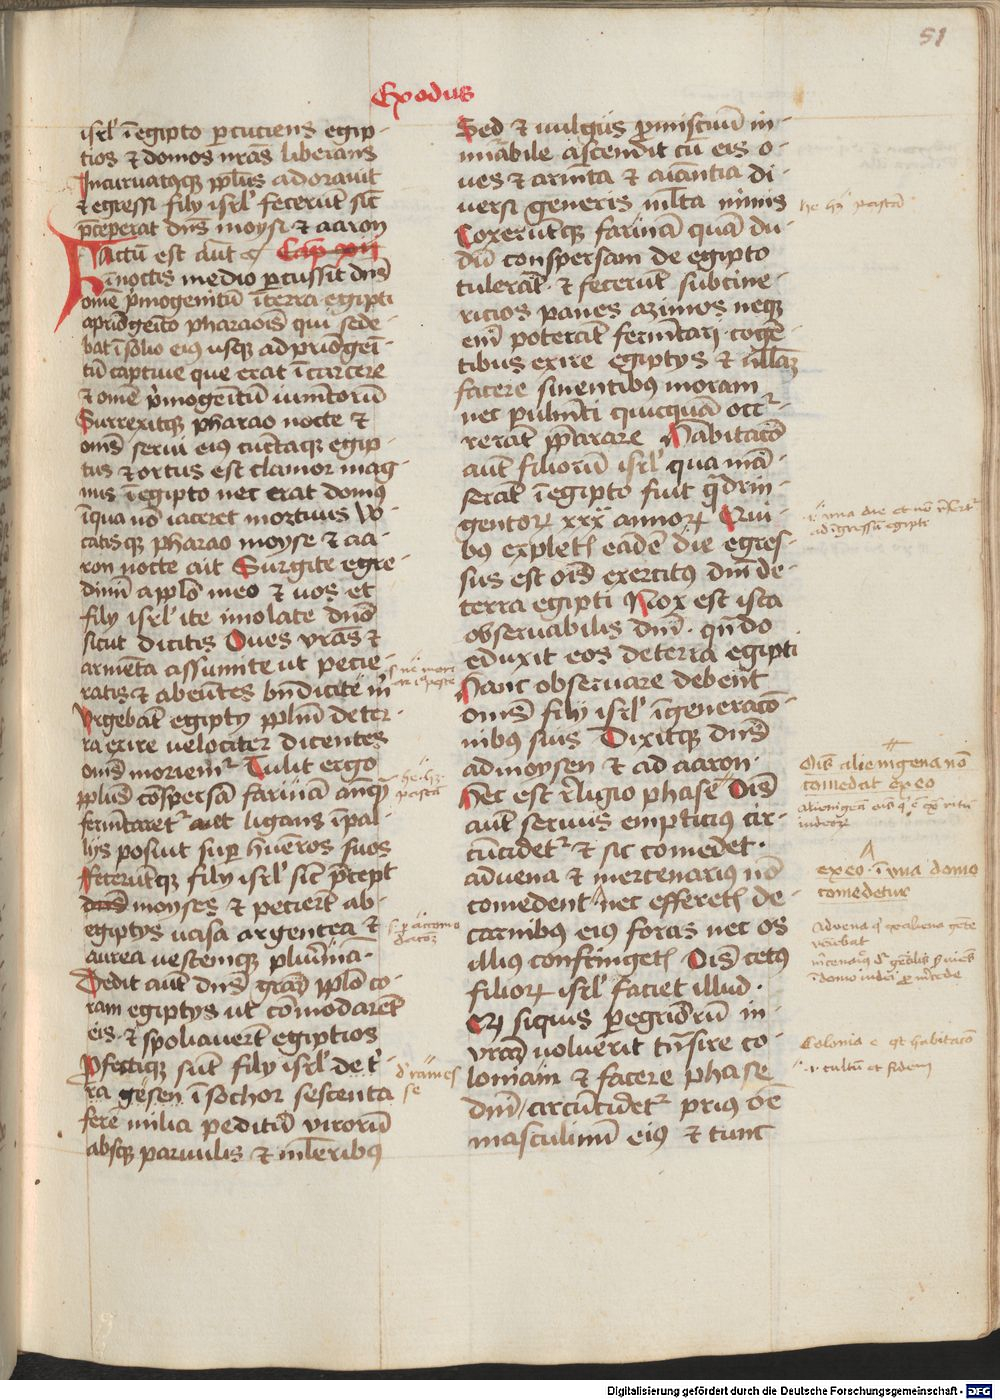 51
Exodus
isrl' ī egipto ꝑcuciens egip-
tios ⁊ domos nr̄as liberans
Incuruatusqꝫ ppl̄us adorauit
⁊ egressi filij isrl' fecerūt sic̄
p̄ceperat dn̄s moysi ⁊ aaron
Factū est aūt Cap̄ xij
ī noctis medio ꝑcussit dn̄s
omē p̄mogenitū ī terra egipti
a pr̄iogeīto pharaois̄ qui sede-
bat ī solio eiꝰ usqꝫ ad priogeī-
tū captiue que erat ī carcere
⁊ omē p̄mogeītū iumtorū
Surrexitqꝫ pharao nocte ⁊
om̄s serui eiꝰ cūctaqꝫ egip-
tus ⁊ ortus est clamor mag-
nus ī egipto nec erat domꝰ
ī qua nō iaceret mortuus Vo-
catisqꝫ pharao moyse ⁊ aa-
ron nocte ait Surgite egre-
dimī a pplō meo ⁊ uos et
filij isrl' ite imolate dn̄o
sicut dicitis Oues vr̄as ⁊
armēta assumite ut pecie-
ratis ⁊ abeūtes bn̄dicite m̄
Vrgebāt egiptij pplm̄ de ter-
ra exire velociter dicentes
om̄s moriemr̄ Tulit ergo
ppl̄us cōspersā farinā anꝙ̄
ferm̄taretr̄ ligans ī pal-
lijs posuit suꝑ hūeros suos
Fecerūtqꝫ filij isrl' sic̄ p̄cept
moyses ⁊ peciert̄ ab
egiptijs uasa argentea ⁊
aurea uestemqꝫ plurīa-
Dedit aūt dn̄s gr̄az̄ pplō co-
ram egiptijs ut cōmodarēt
eis ⁊ spoliauert̄ egiptios
Ꝓfectiqꝫ sūt filij isrl' de t̄-
ra gesen ī sochor sescenta
fere milia peditū virorū
absqꝫ paruulis ⁊ ml̄eribꝰ
Sed ⁊ uulgus ꝓmiscuū in-
nuābile ascendit cū eis o-
ues ⁊ armta ⁊ aīantia di-
uersi generis ml̄ta nimis
Coxerūtqꝫ farinā quā du-
dū conspersam de egipto
tulerāt · ⁊ fecerūt subcine-
ricios panes azimos neqꝫ
eī poterāt ferm̄tari cogē-
tibus exire egiptijs ⁊ nllāz
facere sinentibꝰ moram
nec pulm̄ti quicquā occr̄-
rerāt p̄parare Habitacō
aūt filiorū isrl' qua mā-
serāt ī egipto fuit q̄drin-
gentoꝝ xxx annoꝝ Qui-
bꝰ expletis eadē die egres-
sus est ois̄ exercitꝰ dn̄i de
terra egipti Nox est ista
obseruabilis dn̄i · qn̄do
eduxit eos de terra egipti
Hanc obseruare debent̄
omēs filij isrl' ī generacō-
nibꝰ suis Dixitqꝫ dn̄s
ad moysen ⁊ ad aaron ·
Hec est r̄ligio phase Ois̄
aūt seruus empticiꝰ cir-
cūcidetr̄ ⁊ sic comedet ·
aduena ⁊ mercenarius nō
comedent nec efferetis de
carnibꝰ eiꝰ foras nec os
illius confringetis Ois̄ cetꝰ
filioꝝ isrl' faciet illud ·
Qꝫ siquis ꝑegrinorū in
vr̄az voluerit trn̄sire co-
loniam ⁊ facere phase
dn̄i circūcidetr̄ prius oē
masculinū eiꝰ ⁊ tunc
he hꝫ pastā
·i· una die et nō
ad īgressū egipti
Ois̄ alienigena nō
comedat ex eo
ex eo · ī una domo
comedetur
Aduena q̄ ex aliena gēte
ueniebat
Colonia ē qt habitacō
·i· cultū et sedem
he · hꝫ ·
pastā
d' rames
se
Digitalisierung gefördert durch die Deutsche Forschungsgemeinschaft - DFG